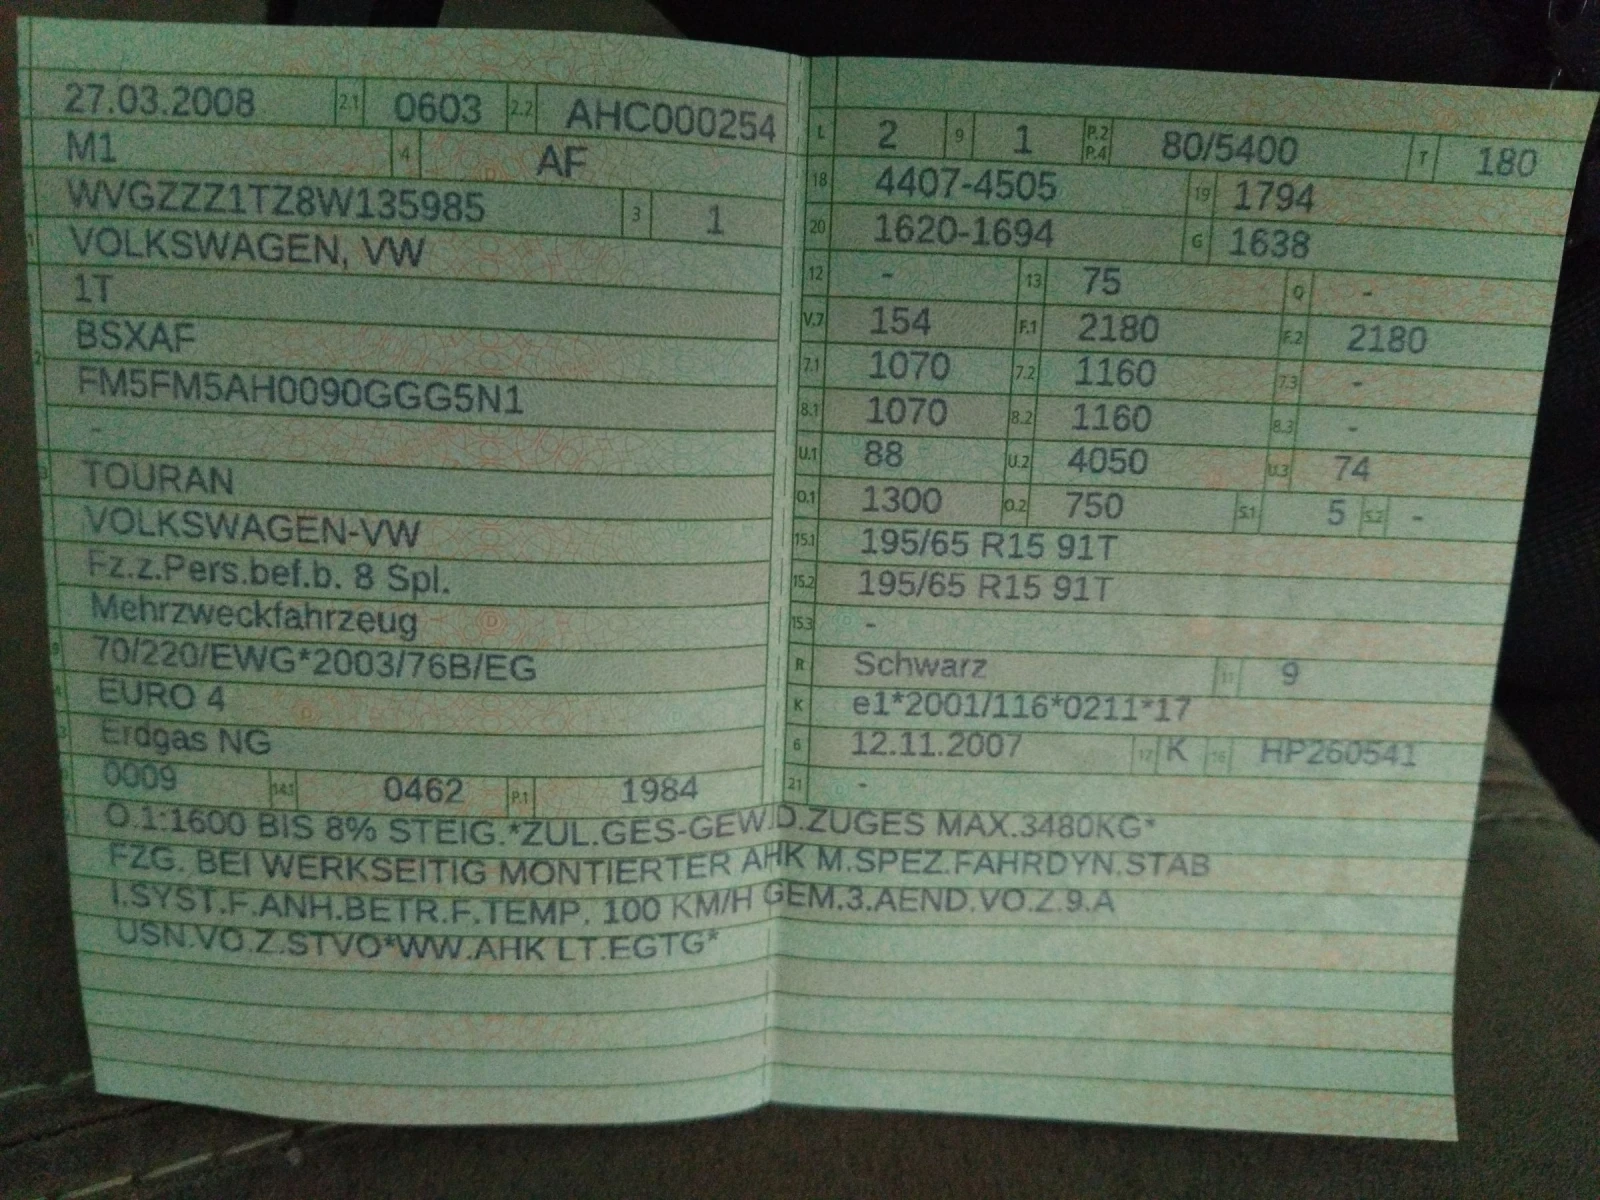 27.03.2008 2.1 0603 2.2 AHC000254
M1 4 AF
WVGZZZ1TZ8W135985 3 1
VOLKSWAGEN, VW
1T
BSXAF
FM5FM5AH0090GGG5N1
-
TOURAN
VOLKSWAGEN-VW
Fz.z.Pers.bef.b. 8 Spl.
Mehrzweckfahrzeug
70/220/EWG*2003/76B/EG
EURO 4
Erdgas NG
0009 14.1 0462 P.1 1984
L 2 9 1 P.2 P.4 80/5400 T 180
18 4407-4505 19 1794
20 1620-1694 G 1638
12 - 13 75 Q -
V.7 154 F.1 2180 F.2 2180
7.1 1070 7.2 1160 7.3 -
8.1 1070 8.2 1160 8.3 -
U.1 88 U.2 4050 U.3 74
O.1 1300 O.2 750 S.1 5 S.2 -
15.1 195/65 R15 91T
15.2 195/65 R15 91T
15.3 -
R Schwarz 11 9
K e1*2001/116*0211*17
6 12.11.2007 17 K 16 HP260541
21 -
O.1:1600 BIS 8% STEIG.*ZUL.GES-GEW.D.ZUGES MAX.3480KG*
FZG. BEI WERKSEITIG MONTIERTER AHK M.SPEZ.FAHRDYN.STAB
I.SYST.F.ANH.BETR.F.TEMP. 100 KM/H GEM.3.AEND.VO.Z.9.A
USN.VO.Z.STVO*WW.AHK LT.EGTG*